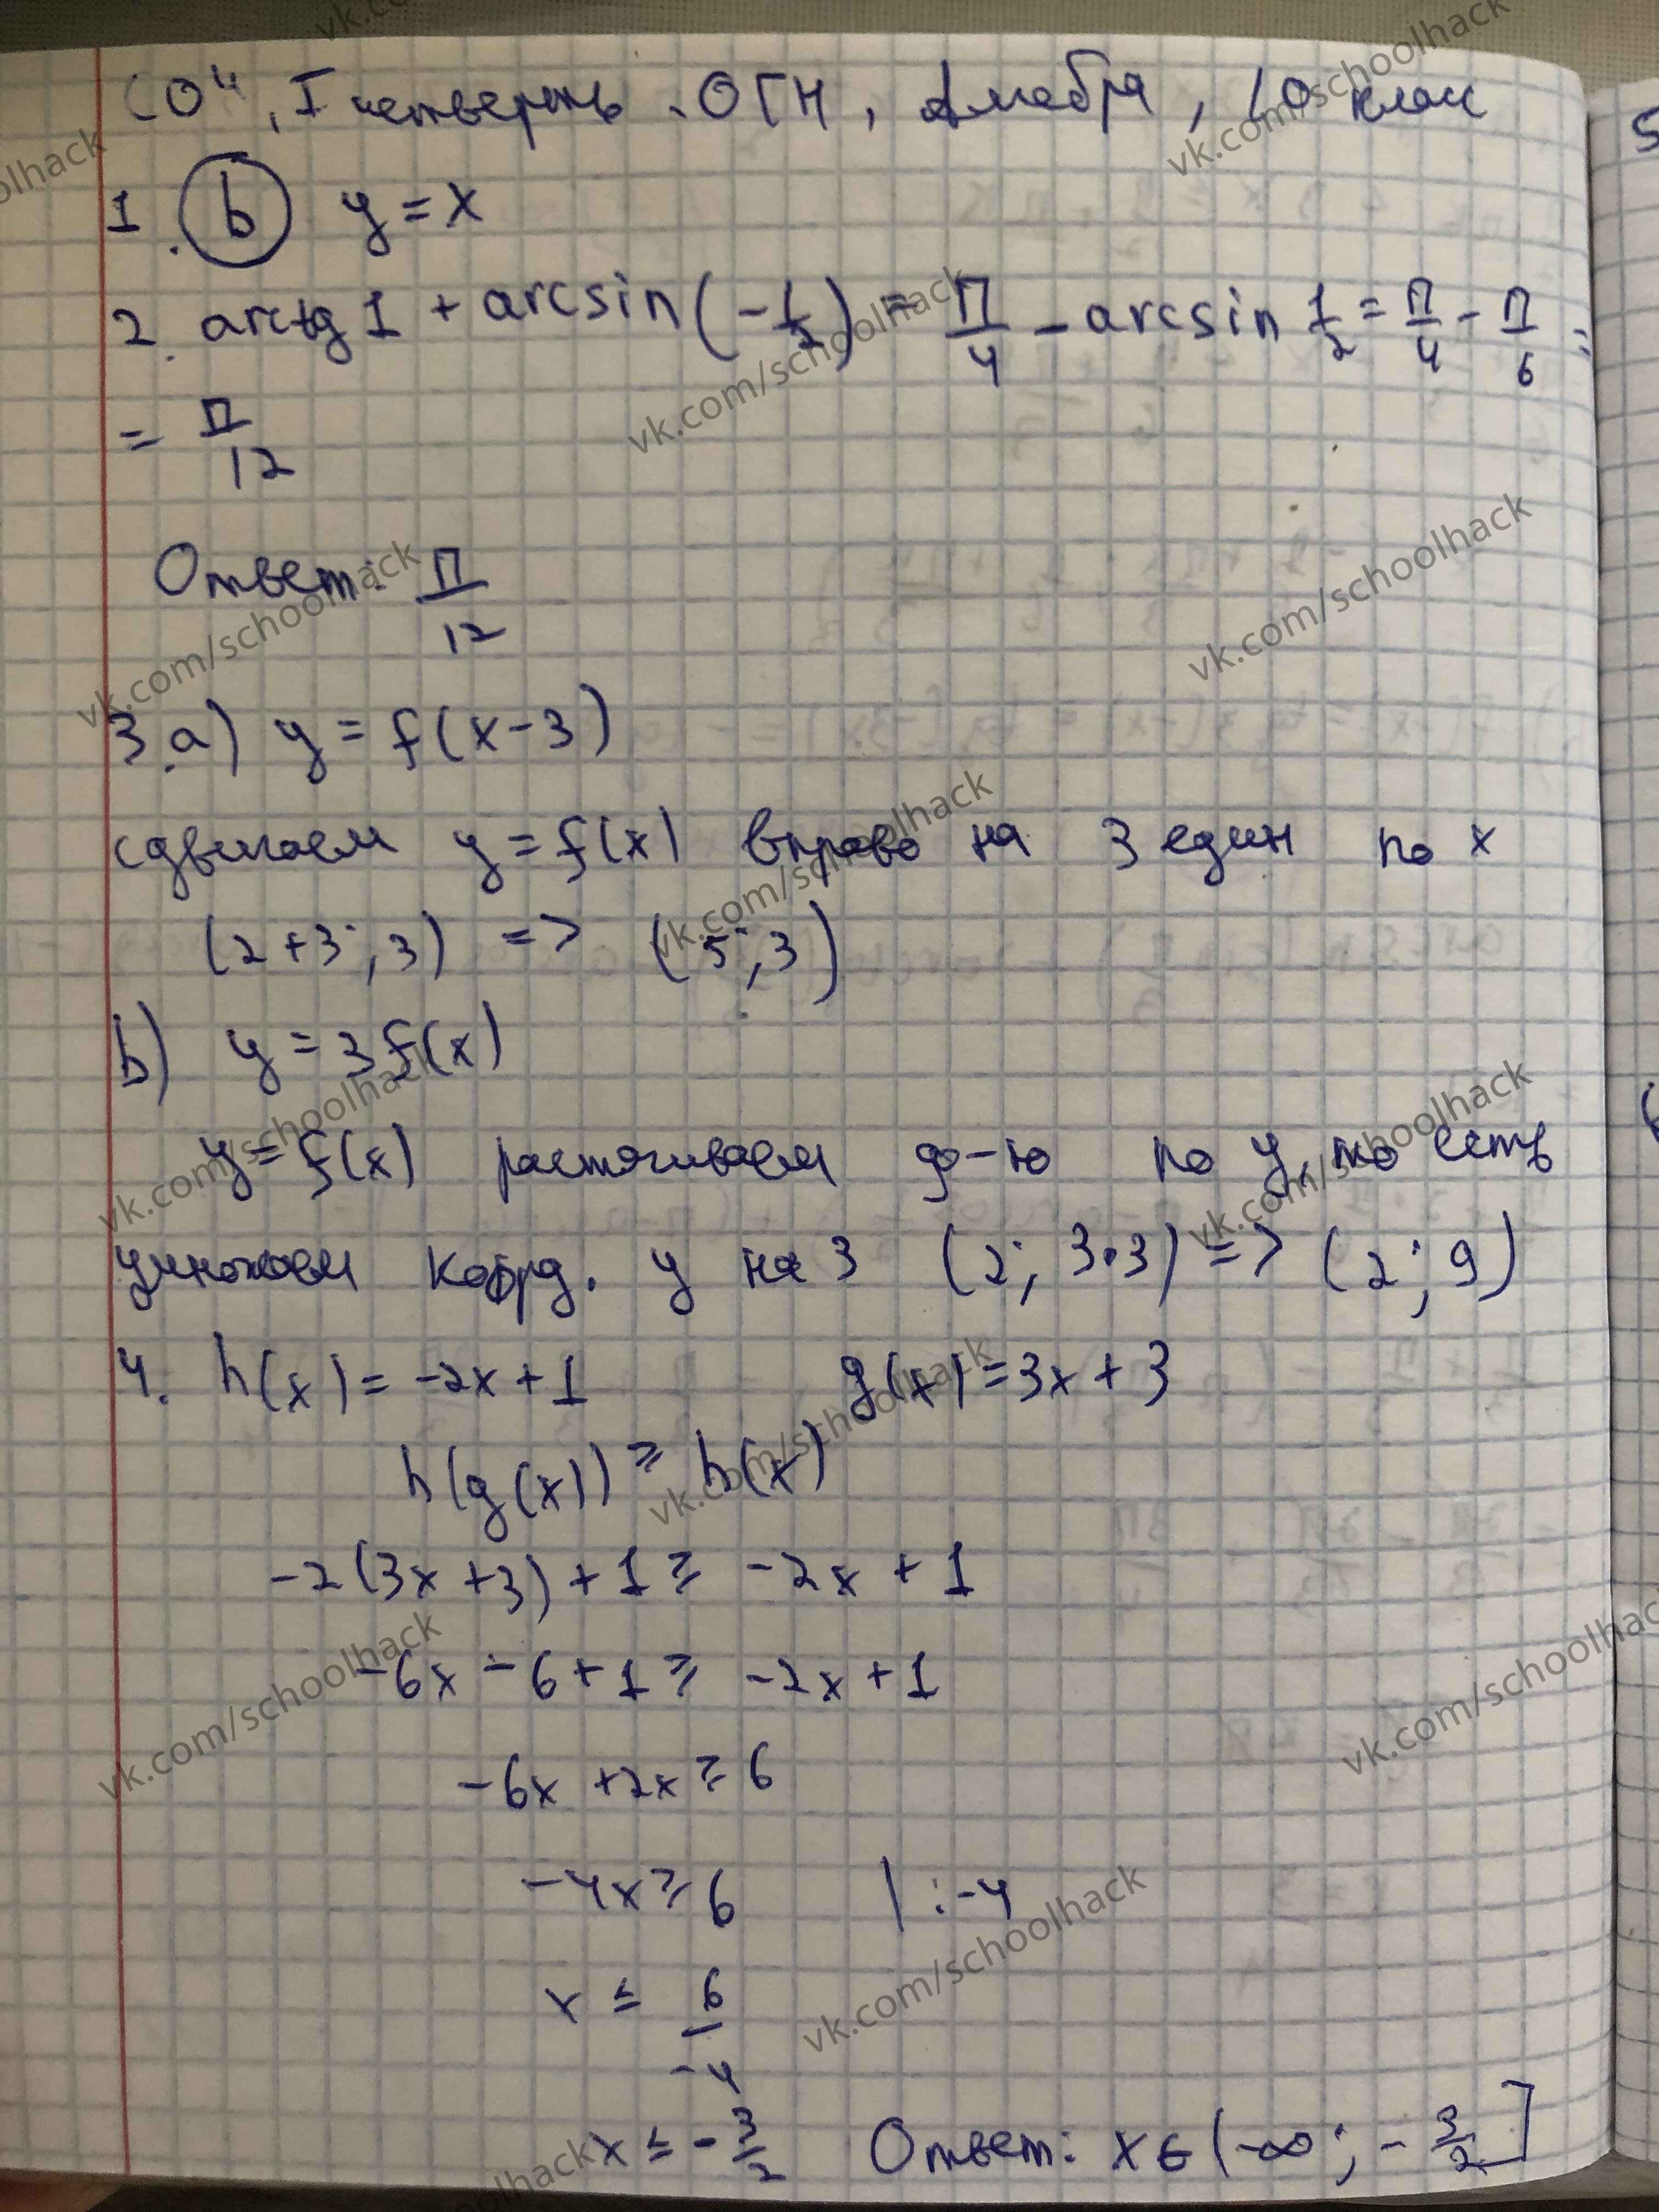 СОЧ, I четверть. ОГН, Алгебра, 10 класс
1. b y = x
2. arctg 1 + arcsin(-1/2) = П/4 - arcsin 1/2 = П/4 - П/6 =
= П/12
Ответ: П/12
3.a) y = f(x-3)
сдвигаем y = f(x) вправо на 3 един по x
(2+3; 3) => (5; 3)
b) y = 3f(x)
y = f(x) растягиваем ф-ю по y, то есть
умножаем коорд. y на 3 (2; 3·3) => (2; 9)
4. h(x) = -2x+1 g(x) = 3x+3
h(g(x)) ≥ h(x)
-2(3x+3)+1 ≥ -2x+1
-6x-6+1 ≥ -2x+1
-6x+2x ≥ 6
-4x ≥ 6 | :-4
x ≤ 6/-4
x ≤ -3/2 Ответ: x∈(-∞; -3/2]
5
vk.com/schoolhack